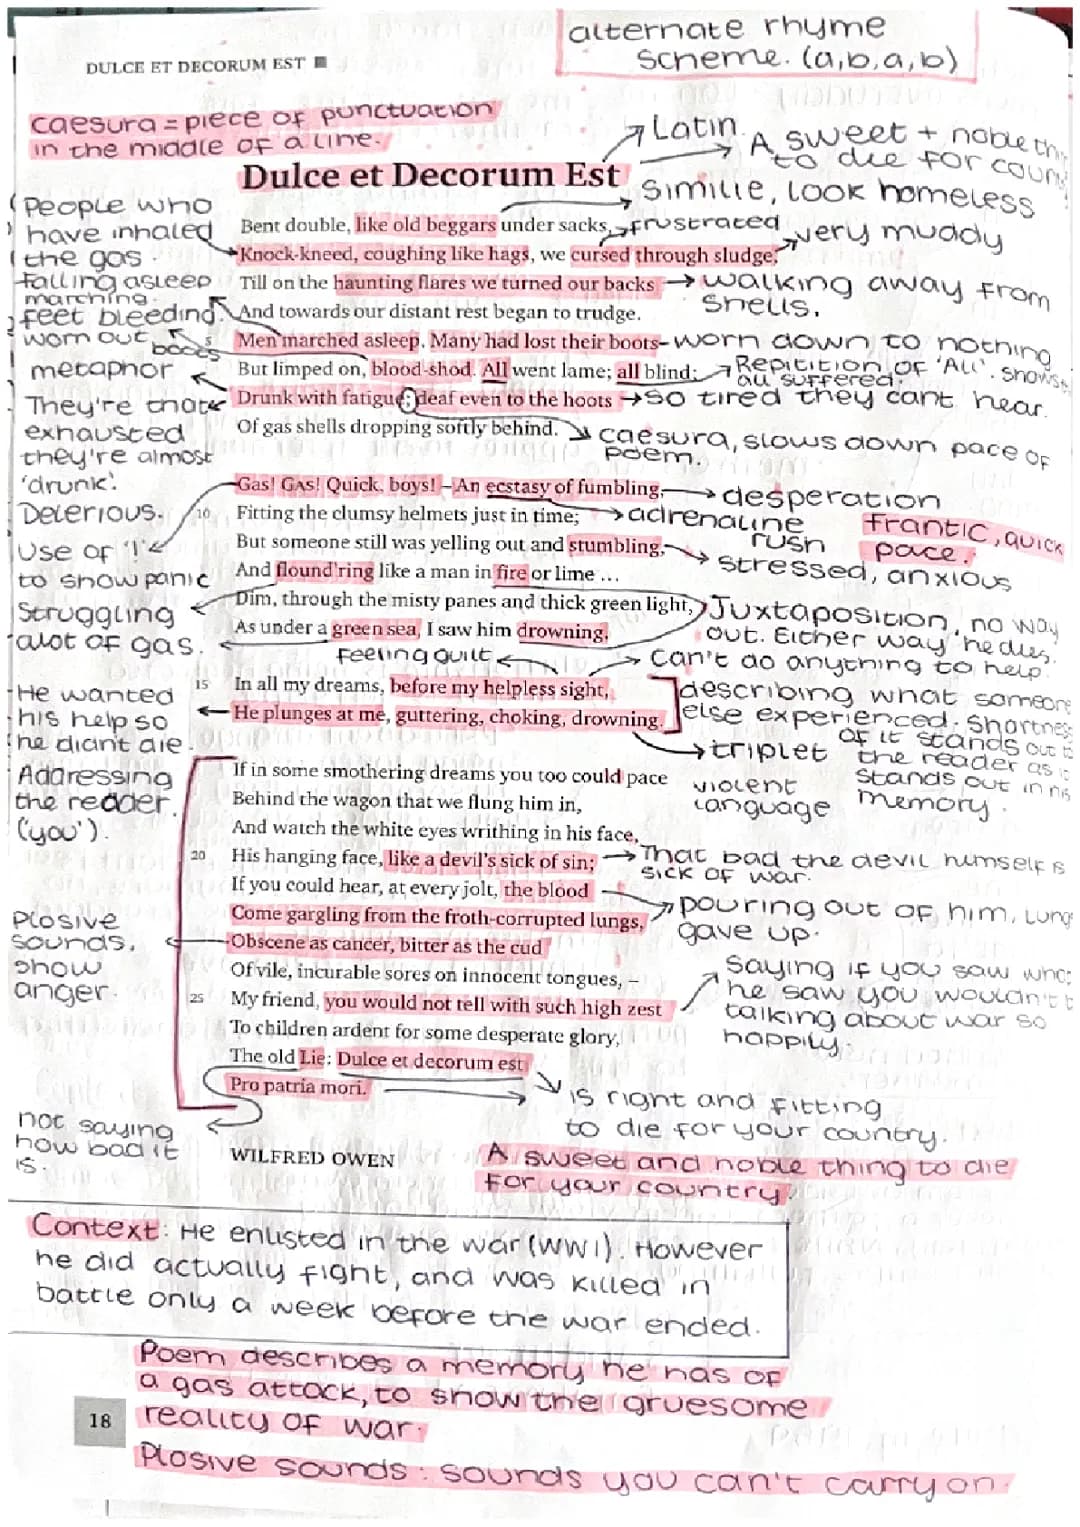 alternate rhyme
scheme. (a,b,a,b)
DULCE ET DECORUM EST
caesura = piece of punctuation
in the middle of a line.
Latin.
A sweet + noble
to die for
Dulce et Decorum Est
Similie, look homeless
People who
have inhaled
the gas.
Bent double, like old beggars under sacks,
frustrated
very muddy
Knock-kneed, coughing like hags, we cursed through sludge,
falling asleep
marching.
Till on the haunting flares we turned our backs
walking away from
shells.
feet bleeding.
And towards our distant rest began to trudge.
worn out
boots
5
Men marched asleep. Many had lost their boots
worn down to nothing
metaphor
But limped on, blood-shod. All went lame; all blind;
Repitition of 'All'. shows
all suffered.
They're that
exhausted
they're almost
'drunk'.
Delerious.
Drunk with fatigue; deaf even to the hoots
so tired they cant hear.
Of gas shells dropping softly behind.
caesura, slows down pace of
poem.
Gas! GAS! Quick, boys! – An ecstasy of fumbling,
desperation
10
Fitting the clumsy helmets just in time;
adrenaline
rush
frantic, quick
pace.
Use of '!'
to show panic
But someone still was yelling out and stumbling,
stressed, anxious
And flound'ring like a man in fire or lime ...
Struggling
Dim, through the misty panes and thick green light,
Juxtaposition, no way
out. Either way he dies.
alot of gas.
As under a green sea, I saw him drowning.
feeling guilt
can't do anything to help.
15
In all my dreams, before my helpless sight,
He wanted
his help so
he didnt die.
He plunges at me, guttering, choking, drowning.
describing what someone
else experienced. Shortness
of it stands out to
the reader as it
stands out in his
memory.
triplet
Addressing
the reader.
('you').
If in some smothering dreams you too could pace
violent
language
Behind the wagon that we flung him in,
And watch the white eyes writhing in his face,
20
His hanging face, like a devil's sick of sin;
That bad the devil himself is
sick of war.
If you could hear, at every jolt, the blood
pouring out of him, lungs
gave up.
Come gargling from the froth-corrupted lungs,
Plosive
sounds,
show
anger.
Obscene as cancer, bitter as the cud
Of vile, incurable sores on innocent tongues, –
Saying if you saw
he saw you wouldn't
talking about war so
happily.
25
My friend, you would not tell with such high zest
To children ardent for some desperate glory,
The old Lie: Dulce et decorum est
Pro patria mori.
is right and fitting
to die for your country.
not saying
how bad it
is.
WILFRED OWEN
A sweet and noble thing to die
for your country.
Context: He enlisted in the war (WW1). However
he did actually fight, and was killed in
battle only a week before the war ended.
Poem describes a memory he has of
a gas attack, to show the gruesome
reality of war.
18
Plosive sounds: sounds you can't carry on.